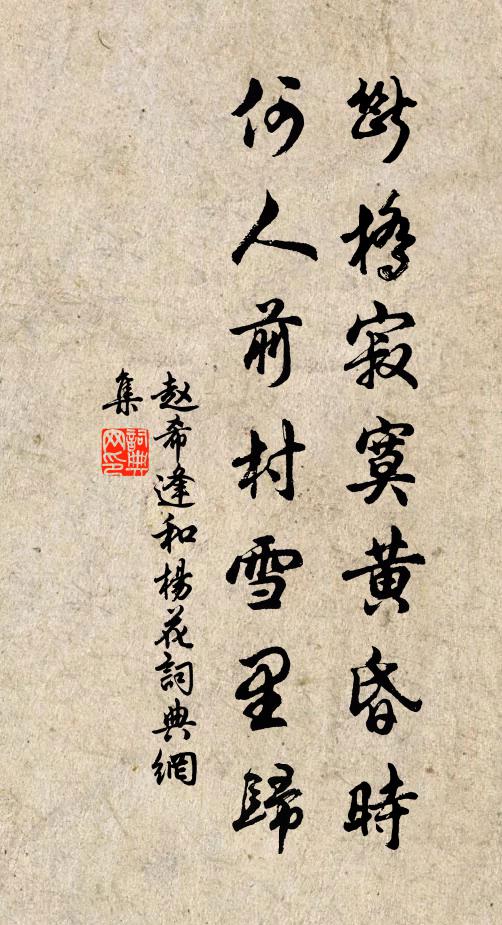 斷橋寂寞黄昏時
何人前村雪里歸
赵希逢和楊花詞典網
集
詞典
网印